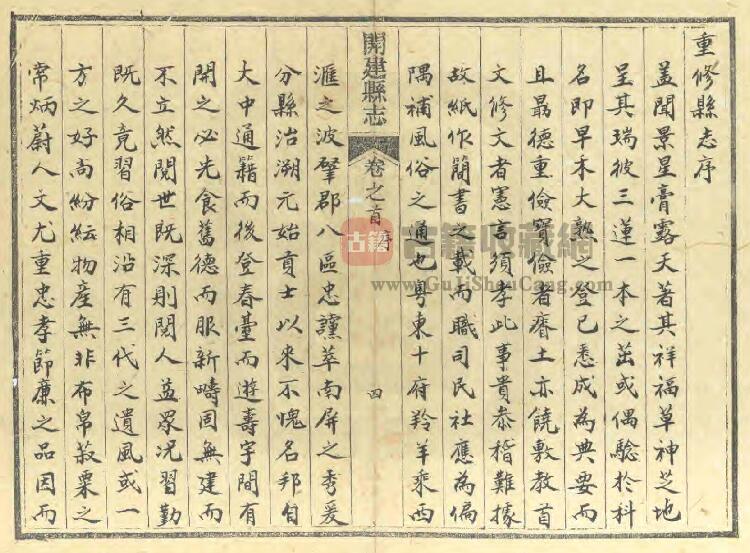 重修縣志序
蓋聞景星膏露天著其祥福草神芝地
呈其瑞彼三蓮一本之茁或偶驗於科
名即早禾大熟之登已悉成為典要而
且最德重儉寶儉者瘠土亦饒敷教首
文修文者憲言須孝此事貴恭稽難據
故紙作簡書之載而職司民社應為偏
隅補風俗之通也粵東十府羚羊乘西
開建縣志
卷之首
序
四
滙之波肇郡八區忠讜萃南屏之秀爰
分縣治溯元始貢士以來不愧名邦自
大中通籍而後登春臺而遊壽宇間有
開之必先食舊德而服新疇固無建而
不立然閱世既深則閱人益眾況習勤
既久竟習俗相沿有三代之遺風或一
方之好尚紛紜物產無非布帛菽粟之
常炳蔚人文尤重忠孝節廉之品因而
古籍
古籍收藏網
www.GuJiShouCang.com